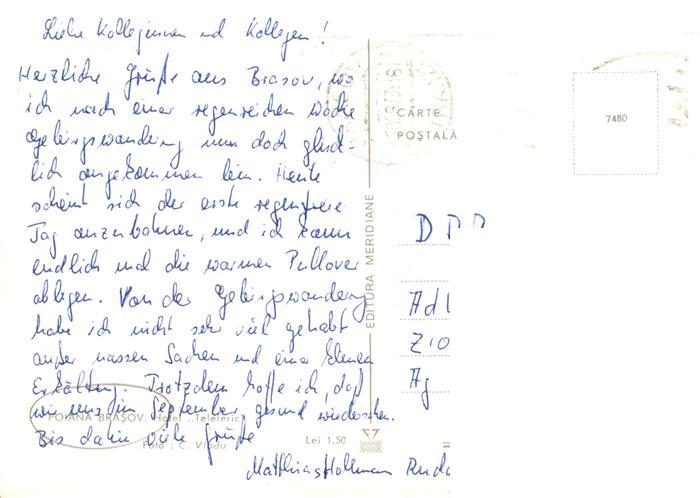 Liebe Kolleginnen und Kollegen!
Herzliche Grüße aus Brasov, wo
ich nach einer regenreichen Woche
Gebirgswanderung nun doch glück-
lich angekommen bin. Heute
scheint sich der erste regenfreie
Tag anzubahnen, und ich kann
endlich mal die warmen Pullover
ablegen. Von der Gebirgswanderung
habe ich nicht sehr viel gehabt
außer nassen Sachen und einer kleinen
Erkältung. Trotzdem hoffe ich, daß
wir uns im September gesund wiedersehen.
Bis dahin viele Grüße
Matthias Hollmann
POIANA BRAȘOV. Hotel „Teleferic"
Foto: C. Vladu
Lei 1,50
EDITURA MERIDIANE
CARTE
POȘTALĂ
7480
DDR
Adl
Zio
Ag